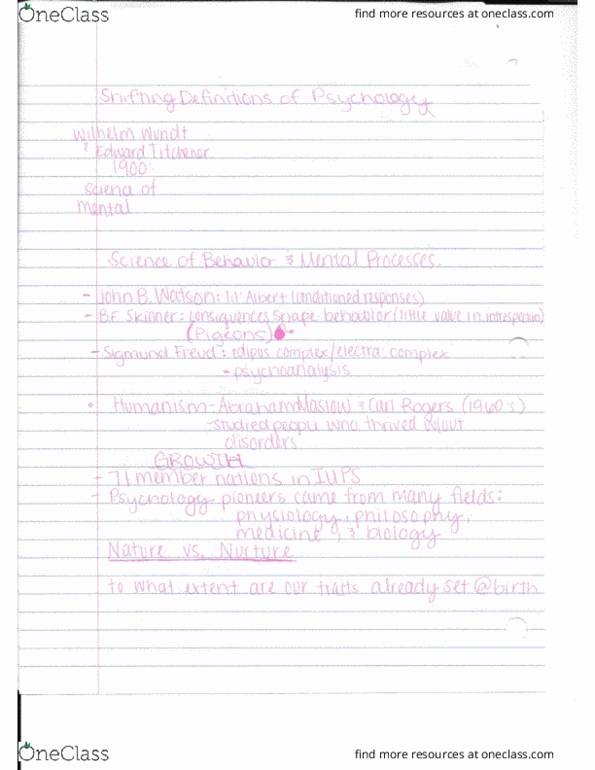 OneClass
find more resources at oneclass.com
Shifting Definitions of Psychology
Wilhelm Wundt
& Edward Titchener
1900
Sciena of
mental
Science of Behavior & Mental Processes.
- John B. Watson: lil' Albert (conditioned responses)
- B.F. Skinner: consiquences shape behavior (little value in introspection)
(Pigeons)
- Sigmund Freud: edipus complex/electra complex
- psychoanalysis
• Humanism - Abraham Maslow & Carl Rogers (1960's)
- studied people who thrived w/out
disorders
GROWTH
- 71 member nations in IUPS
- Psychology pioneers came from many fields:
physiology, philosophy,
medicine, & biology
Nature vs. Nurture
to what extent are our traits already set @ birth
OneClass
find more resources at oneclass.com